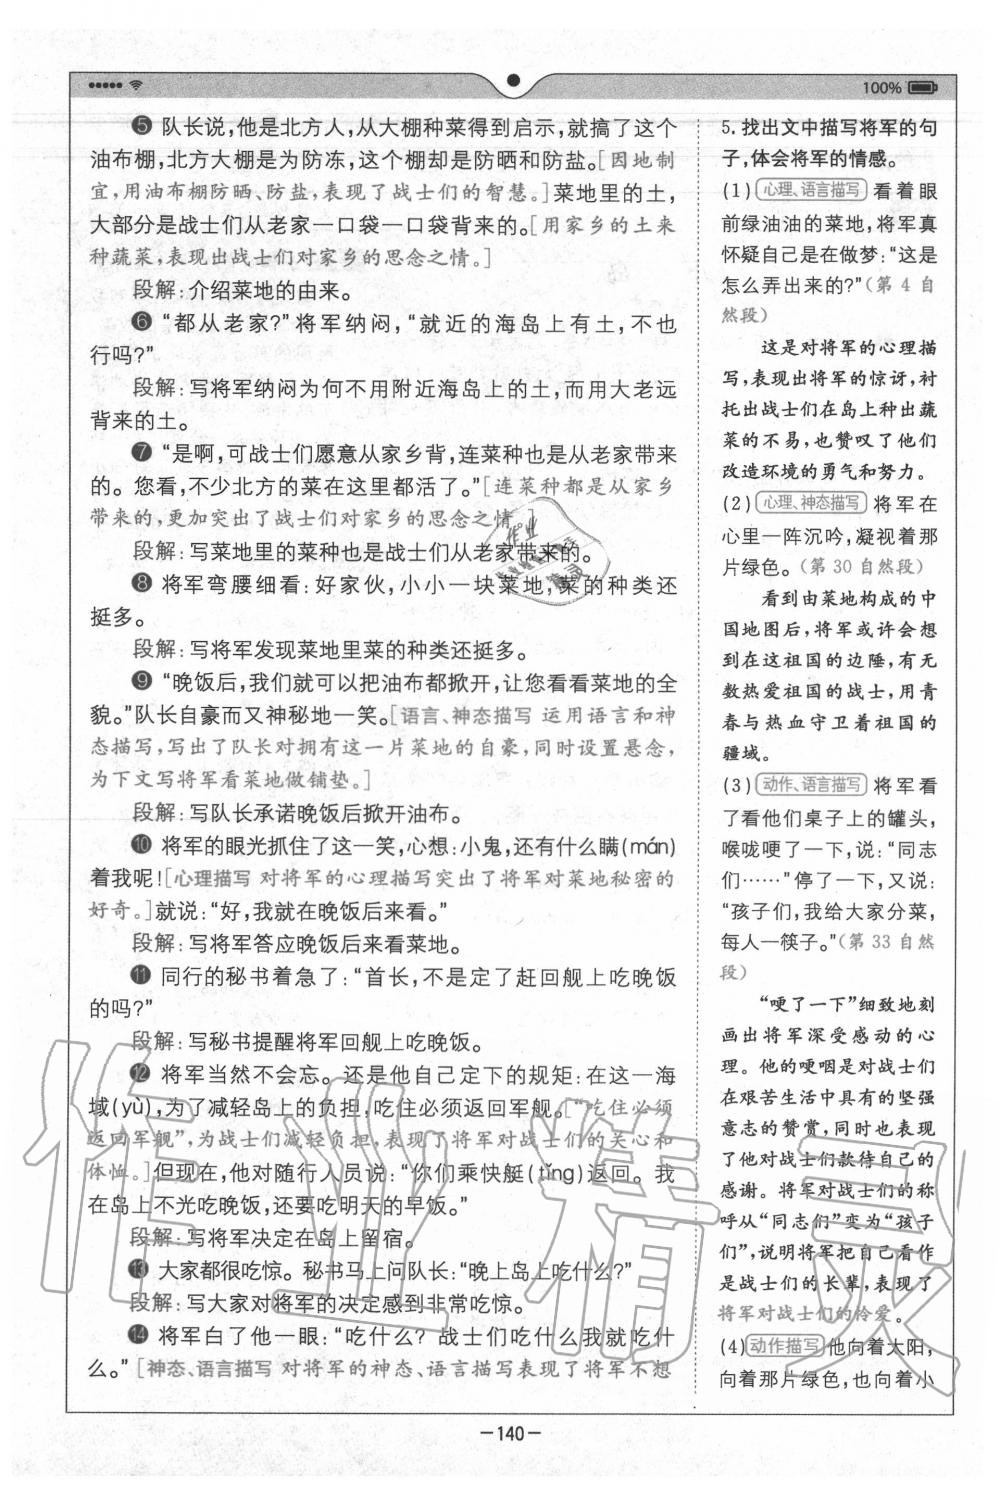 100%
❺ 队长说,他是北方人,从大棚种菜得到启示,就搞了这个
油布棚,北方大棚是为防冻,这个棚却是防晒和防盐。[因地制
宜,用油布棚防晒、防盐,表现了战士们的智慧。]菜地里的土,
大部分是战士们从老家一口袋一口袋背来的。[用家乡的土来
种蔬菜,表现出战士们对家乡的思念之情。]
段解:介绍菜地的由来。
❻ “都从老家?”将军纳闷,“就近的海岛上有土,不也
行吗?”
段解:写将军纳闷为何不用附近海岛上的土,而用大老远
背来的土。
❼ “是啊,可战士们愿意从家乡背,连菜种也是从家乡带来
的。您看,不少北方的菜在这里都活了。”[连菜种都是从家乡
带来的,更加突出了战士们对家乡的思念之情。]
段解:写菜地里的菜种也是战士们从老家带来的。
❽ 将军弯腰细看:好家伙,小小一块菜地,菜的种类还
挺多。
段解:写将军发现菜地里菜的种类还挺多。
❾ “晚饭后,我们就可以把油布都掀开,让您看看菜地的全
貌。”队长自豪而又神秘地一笑。[语言、神态描写 运用语言和神
态描写,写出了队长对拥有这一片菜地的自豪,同时设置悬念,
为下文写将军看菜地做铺垫。]
段解:写队长承诺晚饭后掀开油布。
❿ 将军的眼光抓住了这一笑,心想:小鬼,还有什么瞒(mán)
着我呢![心理描写 对将军的心理描写突出了将军对菜地秘密的
好奇。]就说:“好,我就在晚饭后来看。”
段解:写将军答应晚饭后来看菜地。
⓫ 同行的秘书着急了:“首长,不是定了赶回舰上吃晚饭
的吗?”
段解:写秘书提醒将军回舰上吃晚饭。
⓬ 将军当然不会忘。还是他自己定下的规矩:在这一海
域(yù),为了减轻岛上的负担,吃住必须返回军舰。[“吃住必须
返回军舰”,为战士们减轻负担,表现了将军对战士们的关心和
体恤。]但现在,他对随行人员说:“你们乘快艇(tǐng)返回。我
在岛上不光吃晚饭,还要吃明天的早饭。”
段解:写将军决定在岛上留宿。
⓭ 大家都很吃惊。秘书马上问队长:“晚上岛上吃什么?”
段解:写大家对将军的决定感到非常吃惊。
⓮ 将军白了他一眼:“吃什么?战士们吃什么我就吃什
么。”[神态、语言描写 对将军的神态、语言描写表现了将军不想
5. 找出文中描写将军的句
子,体会将军的情感。
(1) 心理、语言描写 看着眼
前绿油油的菜地,将军真
怀疑自己是在做梦:“这是
怎么弄出来的?”(第 4 自
然段)
这是对将军的心理描
写,表现出将军的惊讶,衬
托出战士们在岛上种出蔬
菜的不易,也赞叹了他们
改造环境的勇气和努力。
(2) 心理、神态描写 将军在
心里一阵沉吟,凝视着那
片绿色。(第 30 自然段)
看到由菜地构成的中
国地图后,将军或许会想
到在这祖国的边陲,有无
数热爱祖国的战士,用青
春与热血守卫着祖国的
疆域。
(3) 动作、语言描写 将军看
了看他们桌子上的罐头,
喉咙哽了一下,说:“同志
们……”停了一下,又说:
“孩子们,我给大家分菜,
每人一筷子。”(第 33 自然
段)
“哽了一下”细致地刻
画出将军深受感动的心
理。他的哽咽是对战士们
在艰苦生活中具有的坚强
意志的赞赏,同时也表现
了他对战士们款待自己的
感谢。将军对战士们的称
呼从“同志们”变为“孩子
们”,说明将军把自己看作
是战士们的长辈,表现了
将军对战士们的怜爱。
(4) 动作描写 他向着大阳,
向着那片绿色,也向着小
作业精灵
—140—